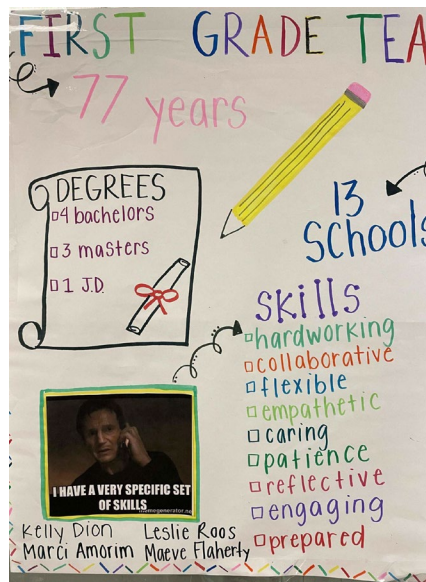 FIRST GRADE TEA
77 years
DEGREES
4 bachelors
3 masters
1 J.D.
13
Schools
Skills
hardworking
collaborative
flexible
empathetic
caring
patience
reflective
engaging
prepared
I HAVE A VERY SPECIFIC SET
OF SKILLS
Kelly Dion Leslie Roos
Marci Amorim Maeve Flaherty